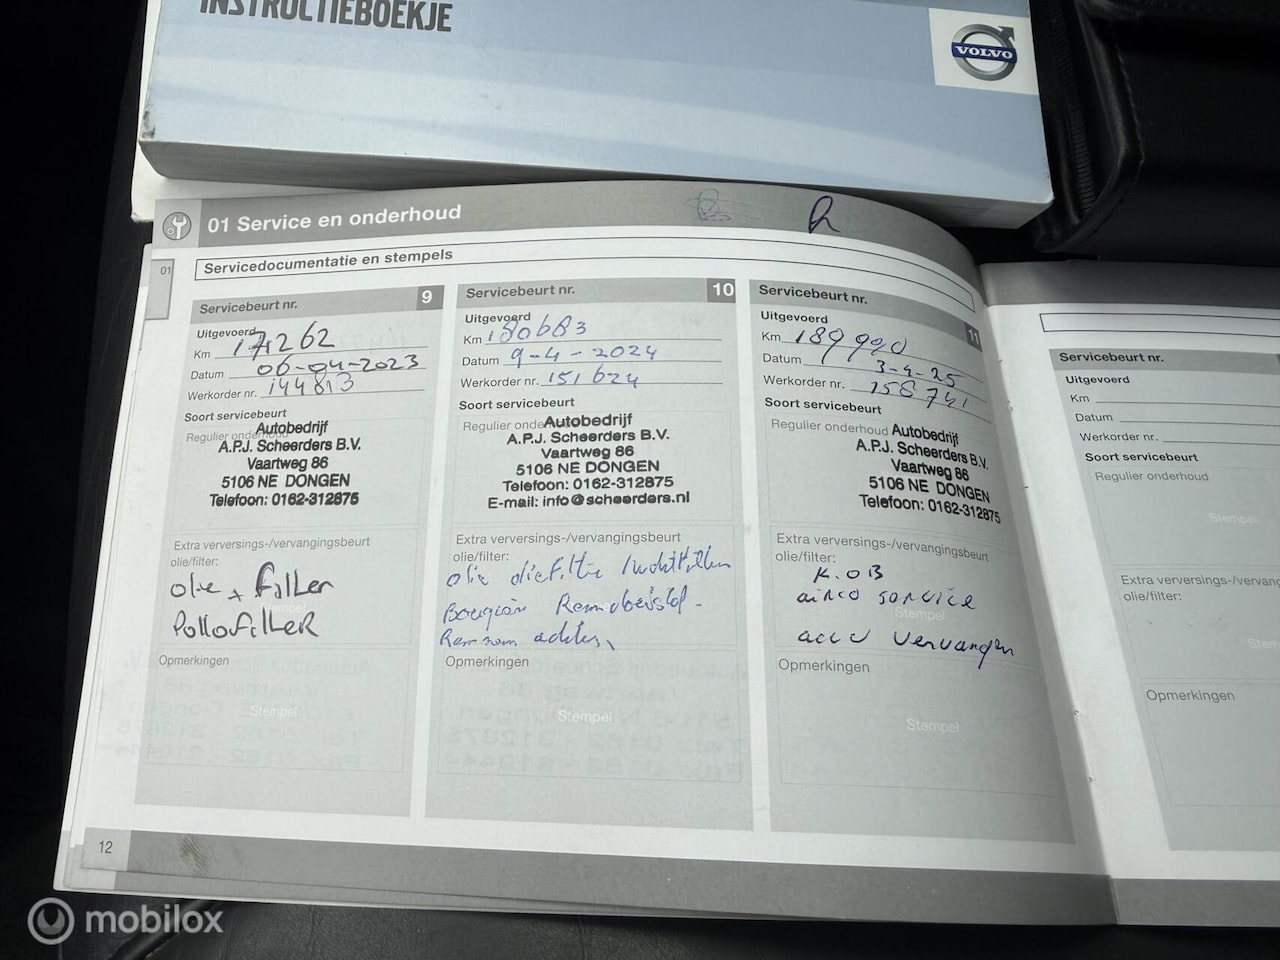 INSTRUCTIEBOEKJE
VOLVO
01 Service en onderhoud
01
Servicedocumentatie en stempels
Servicebeurt nr. 9
Uitgevoerd
Km 171262
Datum 06-04-2023
Werkorder nr. 144813
Soort servicebeurt
Regulier onderhoud
Autobedrijf
A.P.J. Scheerders B.V.
Vaartweg 86
5106 NE DONGEN
Telefoon: 0162-312875
Extra verversings-/vervangingsbeurt
olie/filter:
olie + filter
Pollofilter
Stempel
Opmerkingen
Stempel
Servicebeurt nr. 10
Uitgevoerd
Km 180683
Datum 9-4-2024
Werkorder nr. 151624
Soort servicebeurt
Regulier onde
Autobedrijf
A.P.J. Scheerders B.V.
Vaartweg 86
5106 NE DONGEN
Telefoon: 0162-312875
E-mail: info@scheerders.nl
Extra verversings-/vervangingsbeurt
olie/filter:
olie oliefilter luchtfilter
Bougies Remvloeistof
Remmen achter
Opmerkingen
Stempel
Servicebeurt nr. 11
Uitgevoerd
Km 189990
Datum 3-4-25
Werkorder nr. 158741
Soort servicebeurt
Regulier onderhoud
Autobedrijf
A.P.J. Scheerders B.V.
Vaartweg 86
5106 NE DONGEN
Telefoon: 0162-312875
Extra verversings-/vervangingsbeurt
olie/filter:
K.OB
airco service
Stempel
accu vervangen
Opmerkingen
Stempel
Servicebeurt nr.
Uitgevoerd
Km
Datum
Werkorder nr.
Soort servicebeurt
Regulier onderhoud
Stempel
Extra verversings-/vervang
olie/filter:
Stem
Opmerkingen
12
mobilox